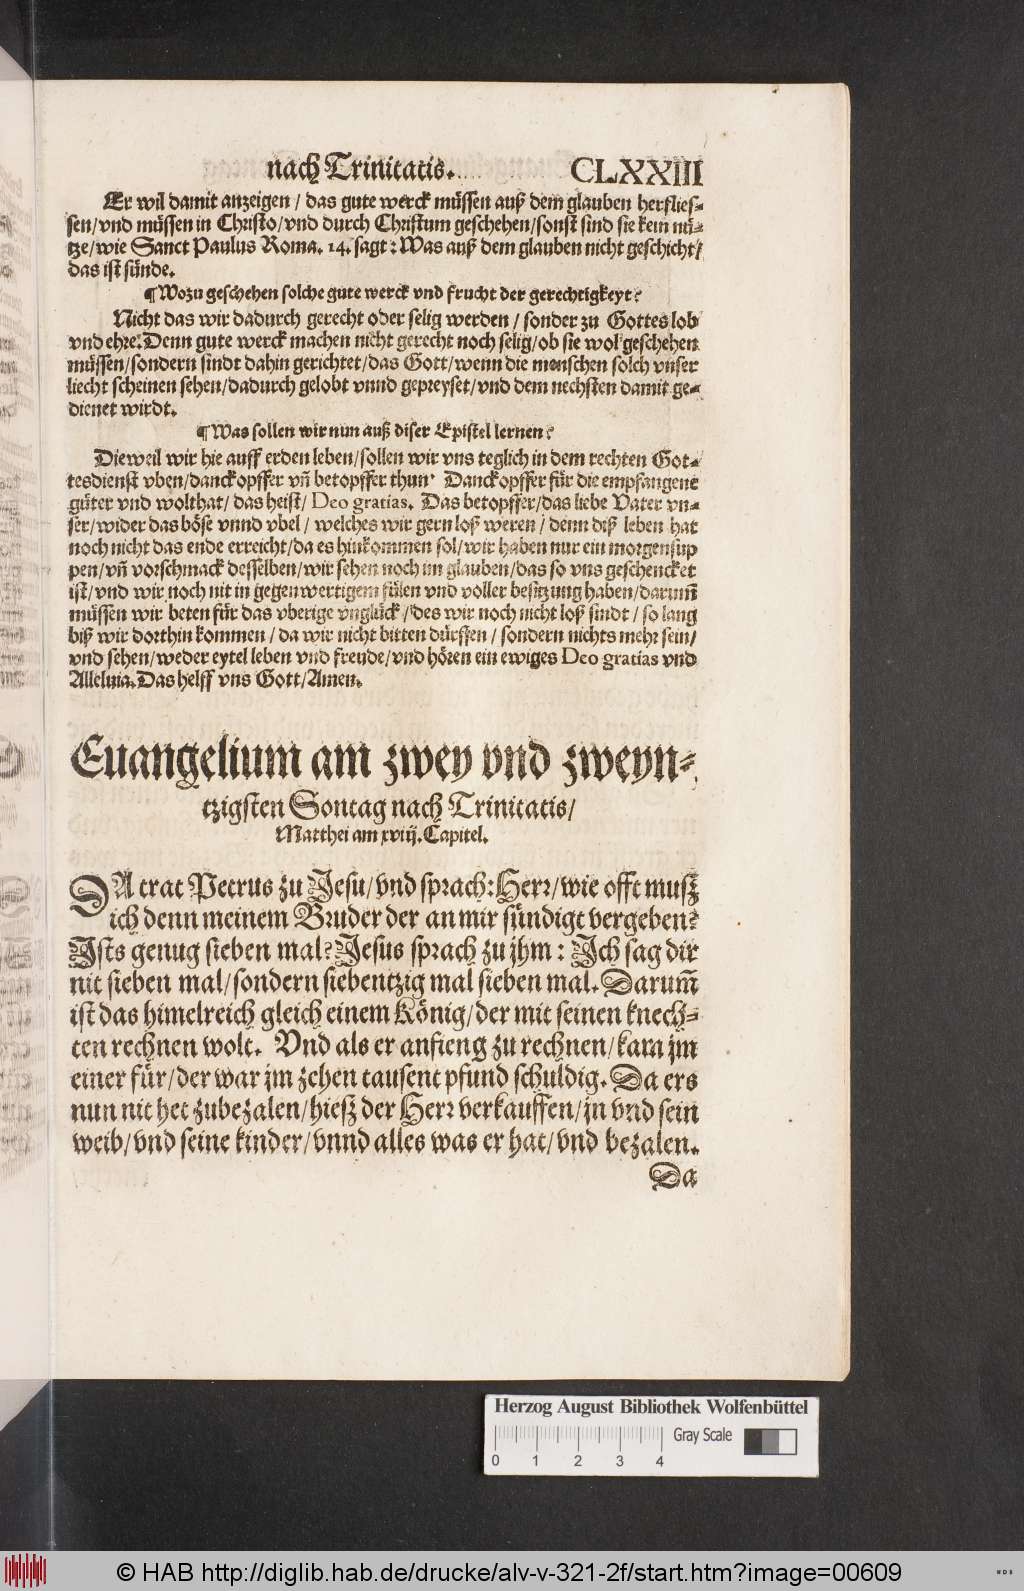 nach Trinitatis. CLXXIII
Er wil damit anzeigen / das gute werck müssen auß dem glauben herflies-
sen/vnd müssen in Christo/vnd durch Christum geschehen/sonst sind sie kein nü-
tze/wie Sanct Paulus Roma. 14. sagt: Was auß dem glauben nicht geschicht/
das ist sünde.
¶Wozu geschehen solche gute werck vnd frucht der gerechtigkeyt?
Nicht das wir dadurch gerecht oder selig werden / sonder zu Gottes lob
vnd ehre. Denn gute werck machen nicht gerecht noch selig/ob sie wol geschehen
müssen/sondern sindt dahin gerichtet/das Gott/wenn die menschen solch vnser
liecht scheinen sehen/dadurch gelobt vnnd gepreyset/vnd dem nechsten damit ge-
dienet wirdt.
¶Was sollen wir nun auß diser Epistel lernen?
Dieweil wir hie auff erden leben/sollen wir vns teglich in dem rechten Got-
tesdienst vben/danckopffer vñ betopffer thun. Danckopffer für die empfangene
güter vnd wolthat/das heist/Deo gratias. Das betopffer/das liebe Vater vn-
ser/wider das böse vnnd vbel / welches wir gern loß weren / denn diß leben hat
noch nicht das ende erreicht/da es hinkommen sol/wir haben nur ein morgensup
pen/vñ vorschmack desselben/wir sehen noch im glauben/das so vns geschencket
ist/vnd wir noch nit in gegenwertigem fülen vnd voller besitzung haben/darum̃
müssen wir beten für das vberige vnglück/des wir noch nicht loß sindt / so lang
biß wir dorthin kommen / da wir nicht bitten dürffen / sondern nichts mehr sein/
vnd sehen/weder eytel leben vnd freude/vnd hören ein ewiges Deo gratias vnd
Alleluia. Das helff vns Gott/Amen.
Euangelium am zwey vnd zweyn-
tzigsten Sontag nach Trinitatis/
Matthei am xviij. Capitel.
DA trat Petrus zu Jesu/vnd sprach: Herr/wie offt musz
ich denn meinem Bruder der an mir sündigt vergeben?
Ists genug sieben mal? Jesus sprach zu jhm: Ich sag dir
nit sieben mal/sondern siebentzig mal sieben mal. Darum̃
ist das himelreich gleich einem König/der mit seinen knech-
ten rechnen wolt. Vnd als er anfieng zu rechnen/kam jm
einer für/der war jm zehen tausent pfund schuldig. Da ers
nun nit het zubezalen/hiesz der Herr verkauffen/jn vnd sein
weib/vnd seine kinder/vnnd alles was er hat/vnd bezalen.
Da
Herzog August Bibliothek Wolfenbüttel
Gray Scale
0 1 2 3 4
© HAB http://diglib.hab.de/drucke/alv-v-321-2f/start.htm?image=00609